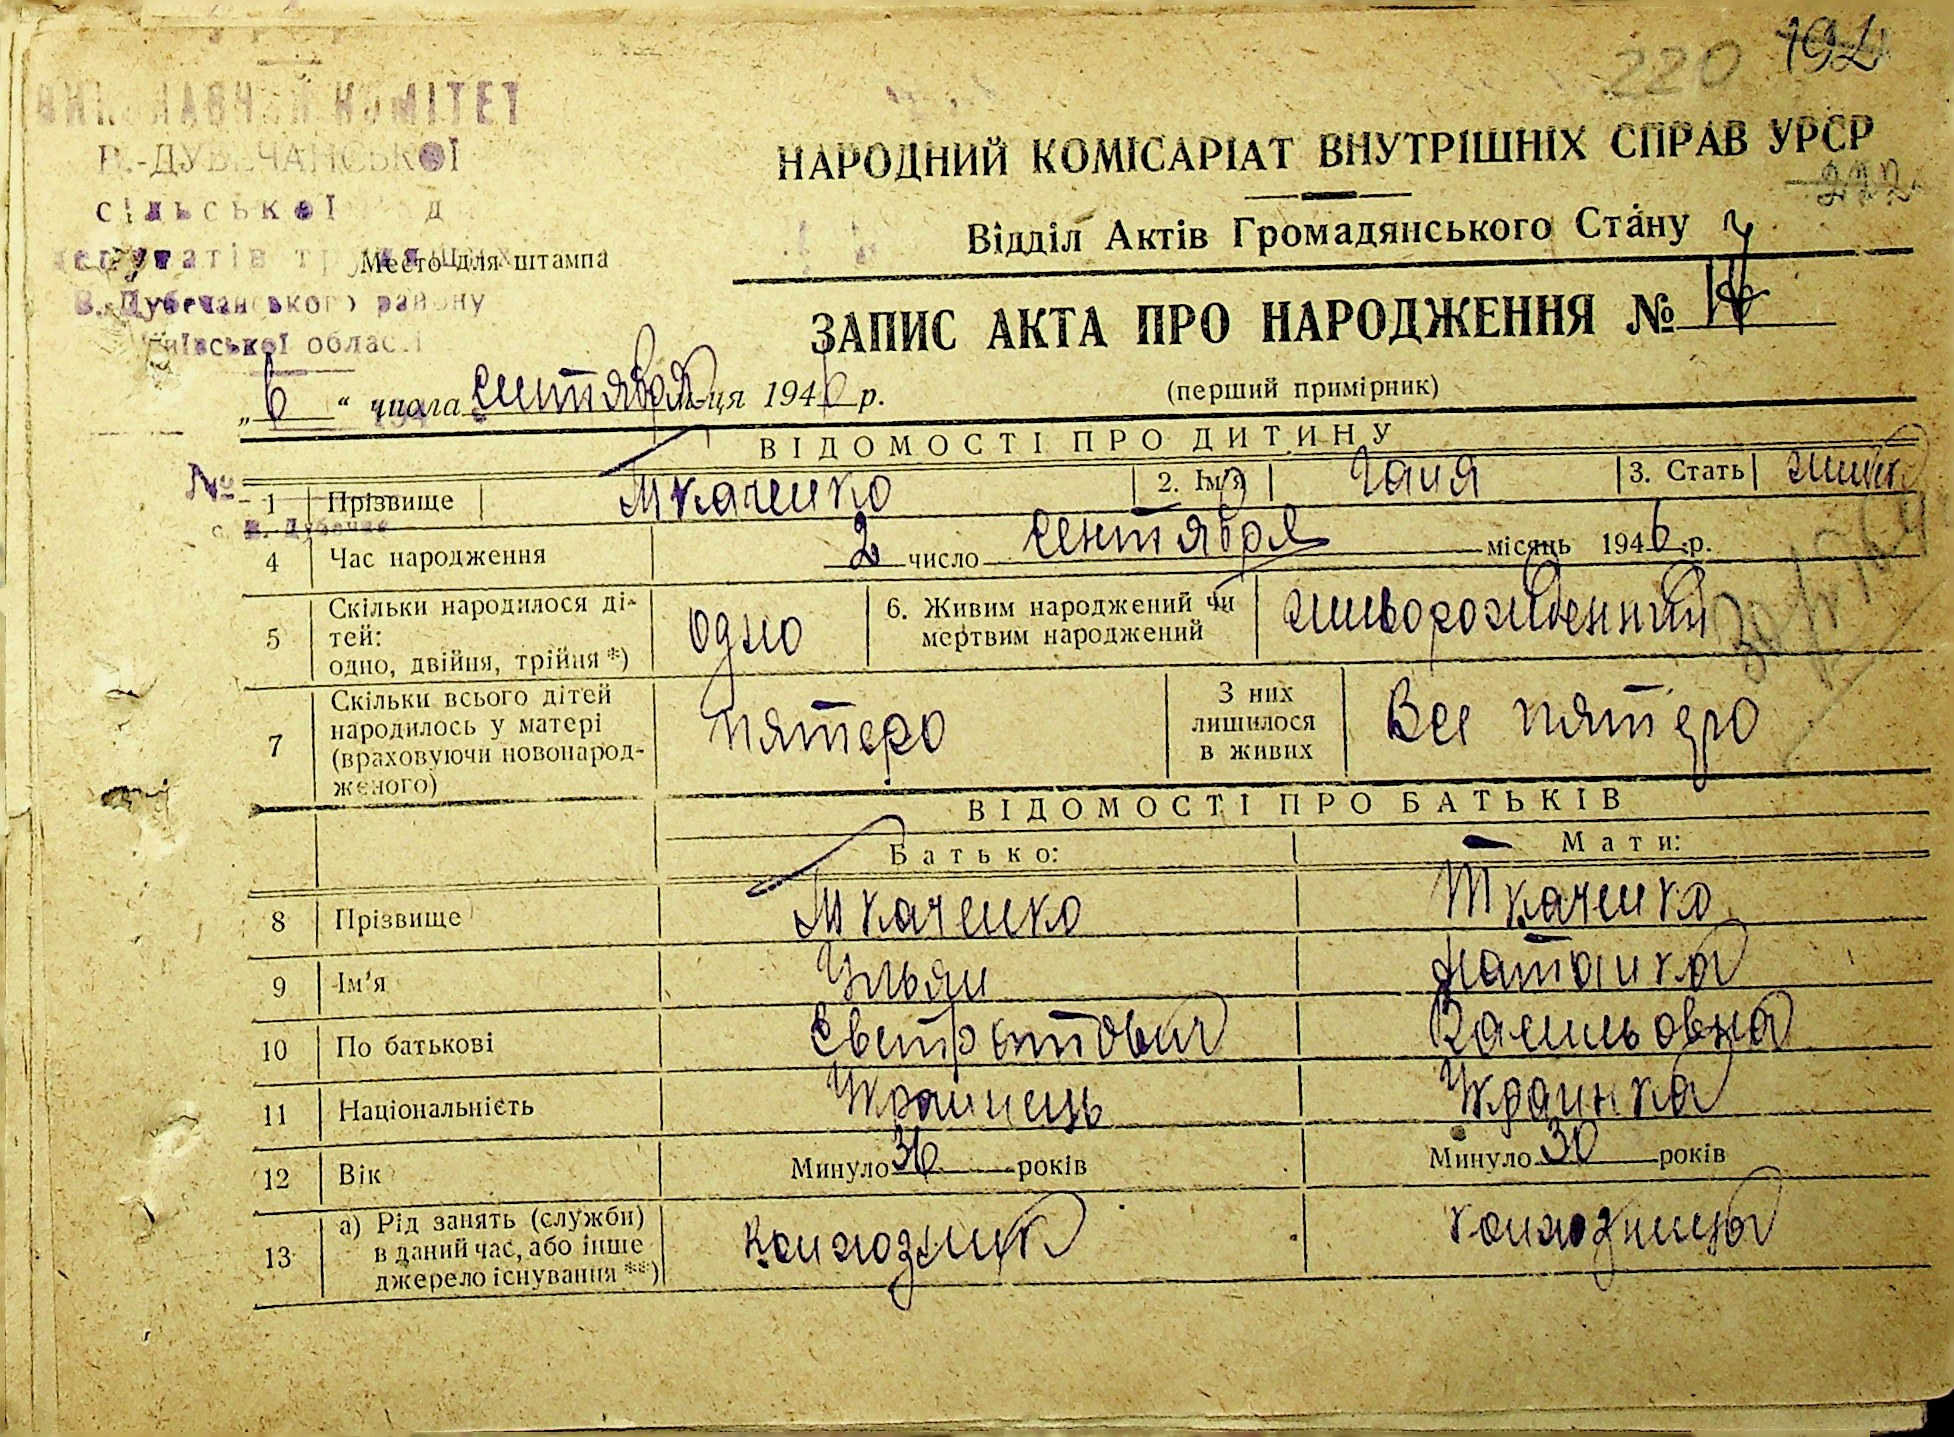 220 192
ВИКОНАВЧИЙ КОМІТЕТ
В.-ДУБЕЧАНСЬКОЇ
сільської ради
депутатів трудящих
В.-Дубечанського району
Київської області
Место для штампа
НАРОДНИЙ КОМІСАРІАТ ВНУТРІШНІХ СПРАВ УРСР
222
Відділ Актів Громадянського Стану
ЗАПИС АКТА ПРО НАРОДЖЕННЯ №
(перший примірник)
„6“ числа сентября м-ця 1946 р.
ВІДОМОСТІ ПРО ДИТИНУ
№
1 Прізвище Ткаченко 2. Ім'я Галя 3. Стать
с. В. Дубечня
4 Час народження 2 число сентября місяць 1946 р.
5 Скільки народилося ді-
тей:
одно, двійня, трійня *) одно
6. Живим народжений чи
мертвим народжений живорожденний
7 Скільки всього дітей
народилось у матері
(враховуючи новонарод-
женого) пятеро
З них
лишилося
в живих Все пятеро
ВІДОМОСТІ ПРО БАТЬКІВ
Батько: Мати:
8 Прізвище Ткаченко Ткаченко
9 Ім'я Ульян Наталка
10 По батькові Євстратович Василь овна
11 Національність Украинець Украинка
12 Вік Минуло 36 років Минуло 30 років
13 а) Рід занять (служби)
в даний час, або інше
джерело існування **) колхозник колхозница